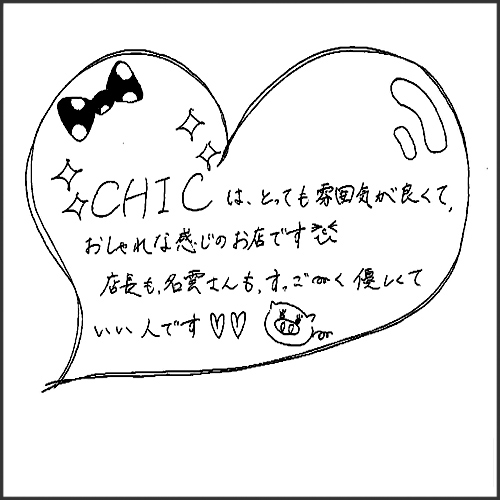 CHIC は、とっても雰囲気が良くて、
おしゃれな感じのお店です
店長も、名雲さんも、すっご〜く優しくて
いい人です♡♡